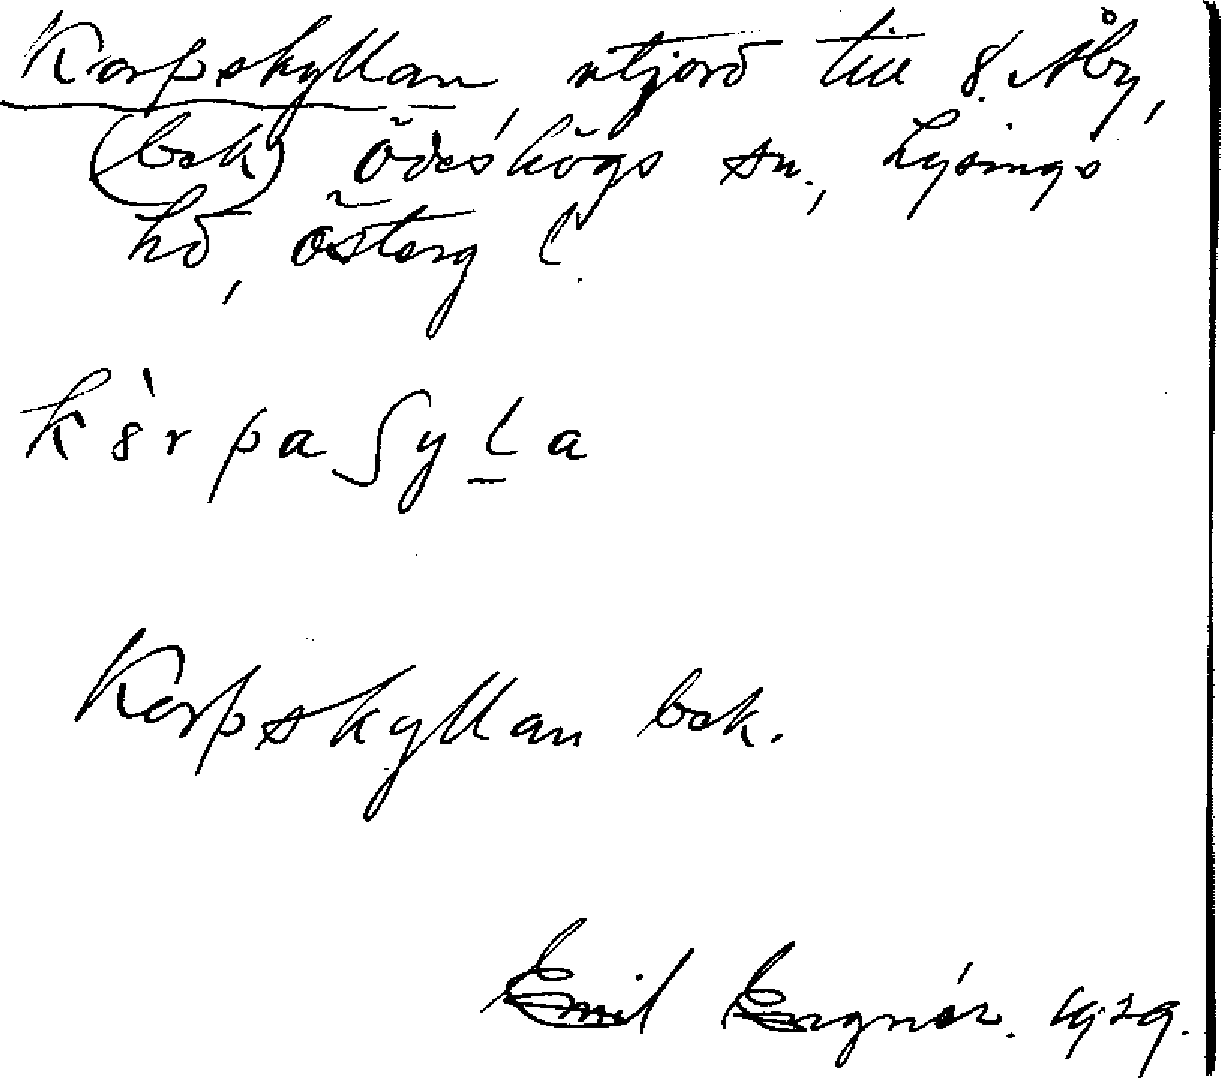 Korpskyllan, utjord till S. Åby,
(bak) Ödeshögs sn., Lysings
hd, Österg l.
kȣ̀rpaʃyḻa
Korpskyllan bak.
Emil Engnér. 1929.